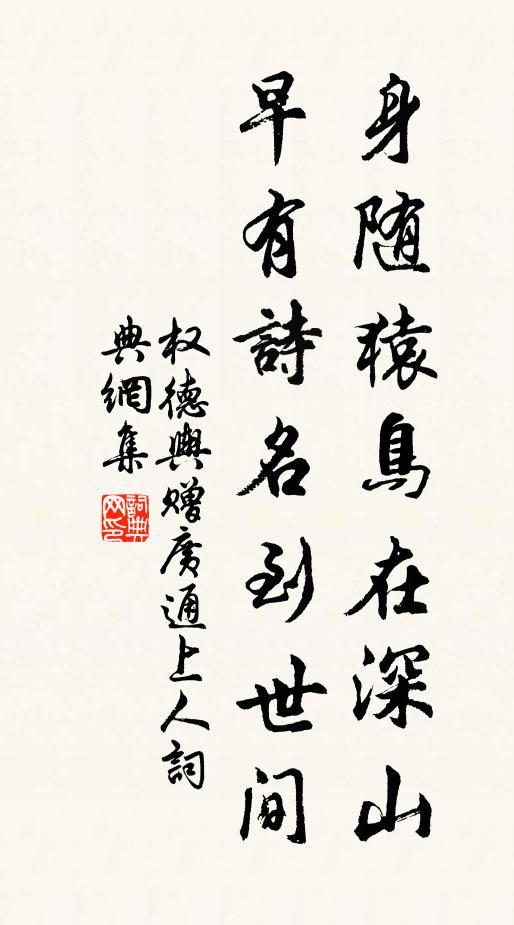 身随猿鳥在深山
早有詩名到世间
权德輿赠廣通上人詞
典網集
詞典
网印